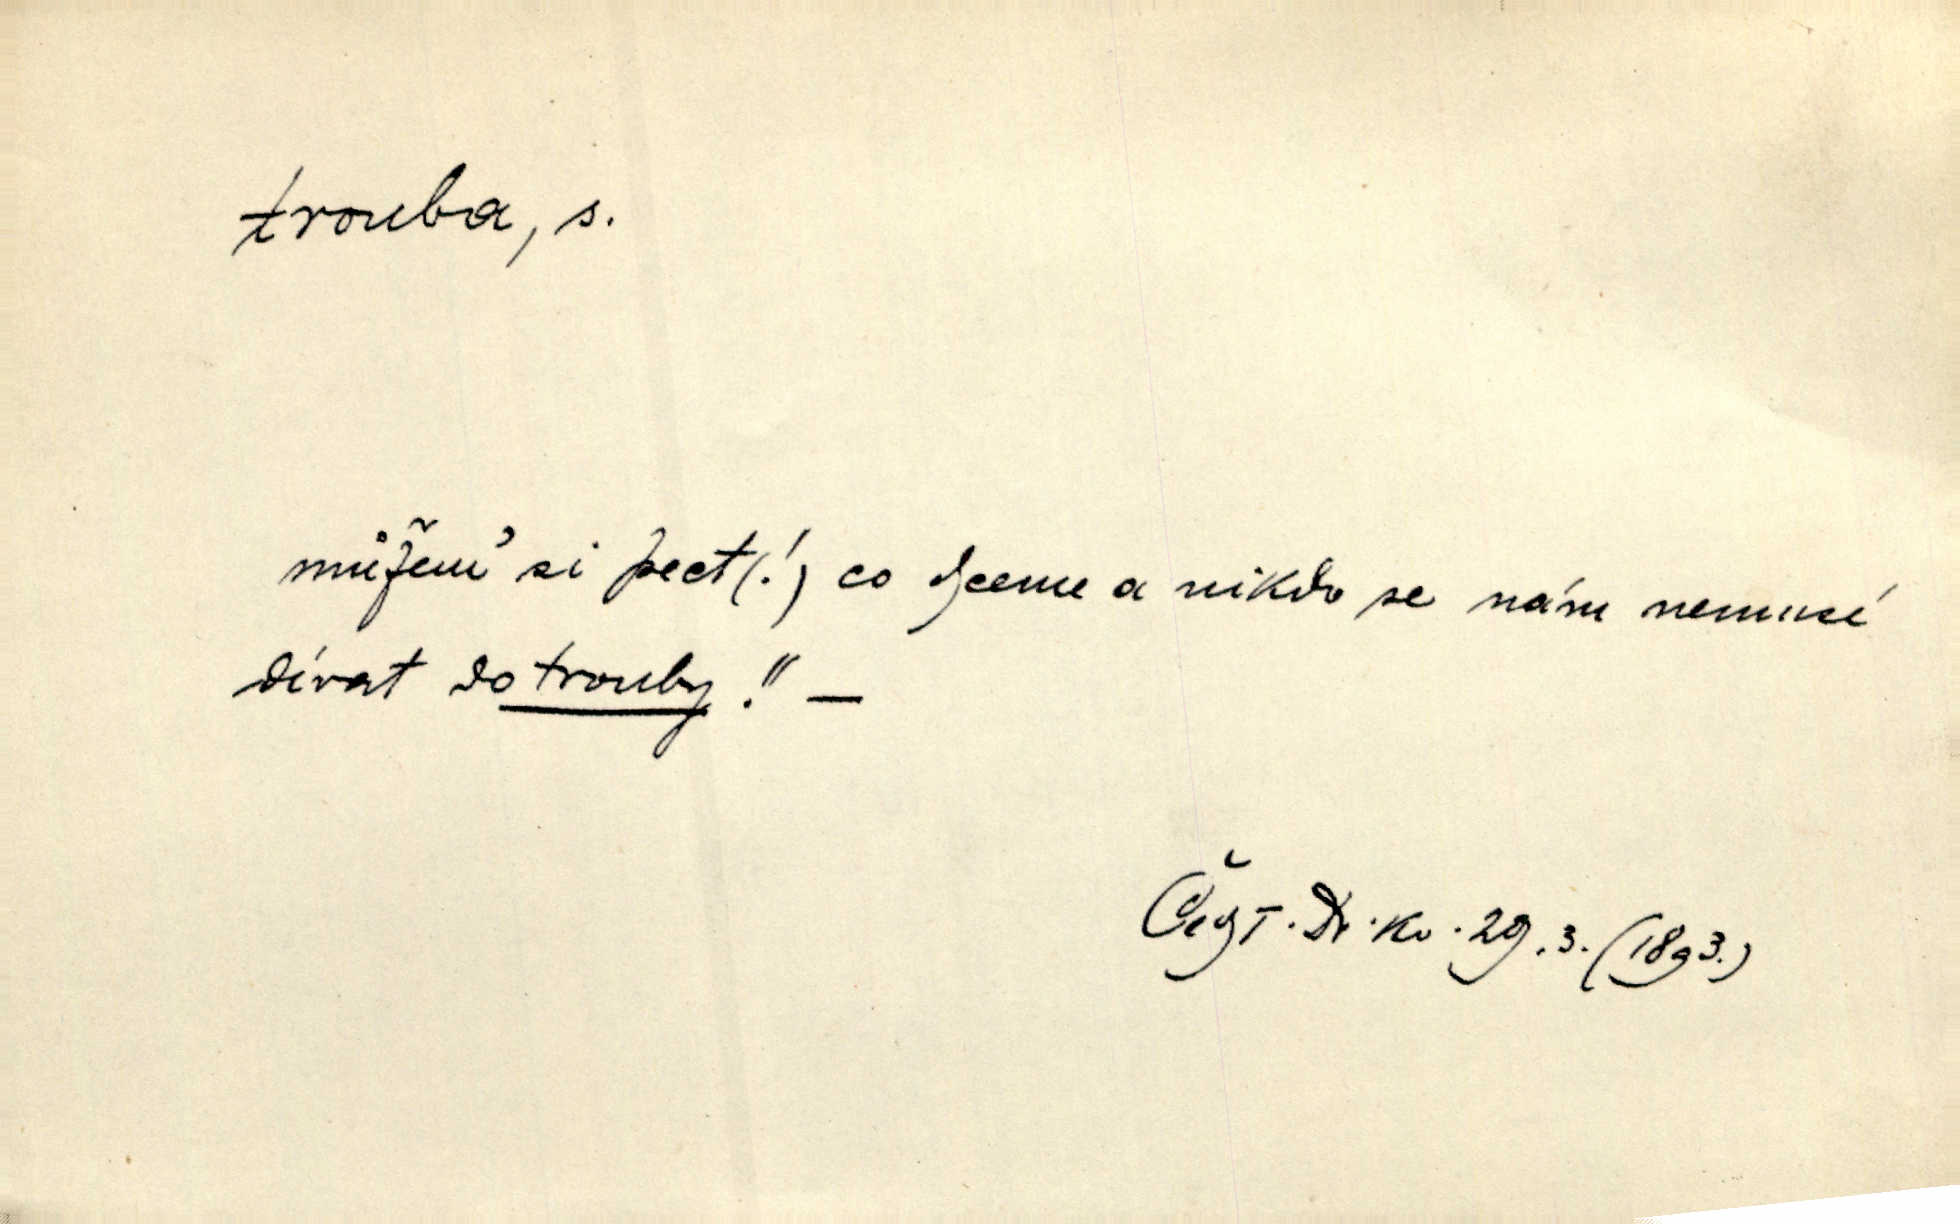 trouba, s.
můžem' si pect(!) co chceme a nikdo se nám nemusí
dívat do trouby!" —
Čech T. Dr. Kv. 29.3. (1893.)